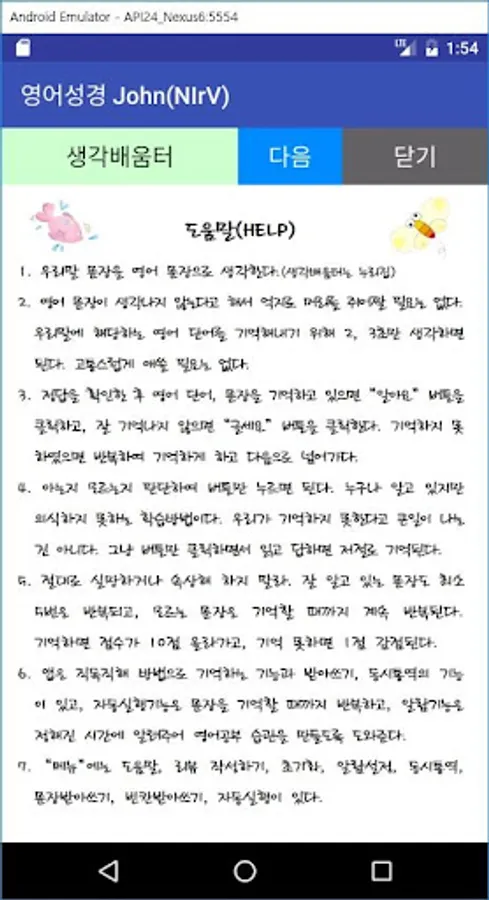 Android Emulator - API24_Nexus6:5554
LTE 1:54
영어성경 John(NIrV)
생각배움터 다음 닫기
도움말(HELP)
1. 우리말 문장을 영어 문장으로 생각한다.(생각배움터는 누리집)
2. 영어 문장이 생각나지 않는다고 해서 억지로 머리를 쥐어짤 필요는 없다.
우리말에 해당하는 영어 단어를 기억해내기 위해 2, 3초만 생각하면
된다. 고통스럽게 애쓸 필요는 없다.
3. 정답을 확인한 후 영어 단어, 문장을 기억하고 있으면 "알아요" 버튼을
클릭하고, 잘 기억나지 않으면 "글세요" 버튼을 클릭한다. 기억하지 못
하였으면 반복하여 기억하게 하고 다음으로 넘어가다.
4. 아는지 모르는지 판단하여 버튼만 누르면 된다. 누구나 알고 있지만
의식하지 못하는 학습방법이다. 우리가 기억하지 못한다고 큰일이 나는
건 아니다. 그냥 버튼만 클릭하면서 읽고 답하면 저절로 기억된다.
5. 절대로 실망하거나 속상해 하지 말라. 잘 알고 있는 문장도 최소
5번은 반복되고, 모르는 문장은 기억할 때까지 계속 반복된다.
기억하면 점수가 10점 올라가고, 기억 못하면 1점 감점된다.
6. 앱은 직독직해 방법으로 기억하는 기능과 받아쓰기, 동시통역의 기능
이 있고, 자동실행기능은 문장을 기억할 때까지 반복하고, 알람기능은
정해진 시간에 알려주어 영어공부 습관을 만들도록 도와준다.
7. "메뉴"에는 도움말, 리뷰 작성하기, 초기화, 알람설정, 동시통역,
문장받아쓰기, 빈칸받아쓰기, 자동실행이 있다.